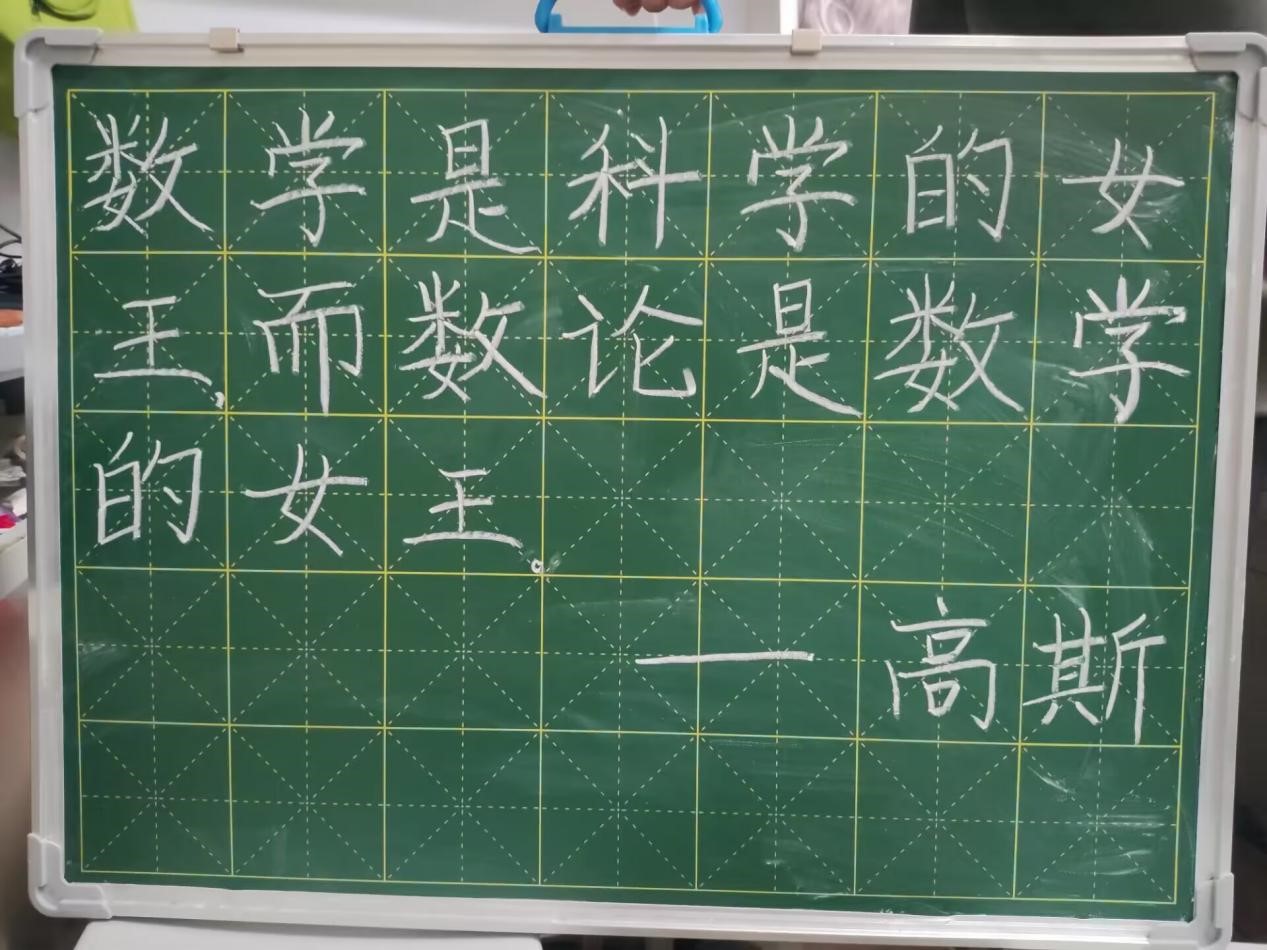 数学是科学的女
王,而数论是数学
的女王。
—高斯